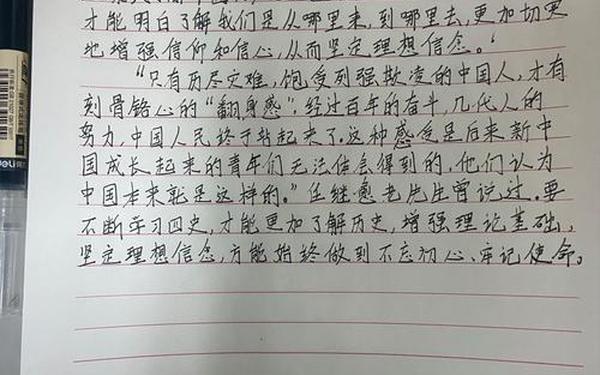 才能明白了解我们是从哪里来,到哪里去,更加切实
地增强信仰和信心,从而坚定理想信念。
“只有历尽灾难,饱受列强欺凌的中国人,才有
刻骨铭心的“翻身感”。经过百年的奋斗,几代人的
努力,中国人民终于站起来了。这种感受是后来新中
国成长起来的青年们无法体会得到的,他们认为
中国本来就是这样的。”任继愈老先生曾说过。要
不断学习四史,才能更加了解历史,增强理论基础,
坚定理想信念,方能始终做到不忘初心、牢记使命。
deli